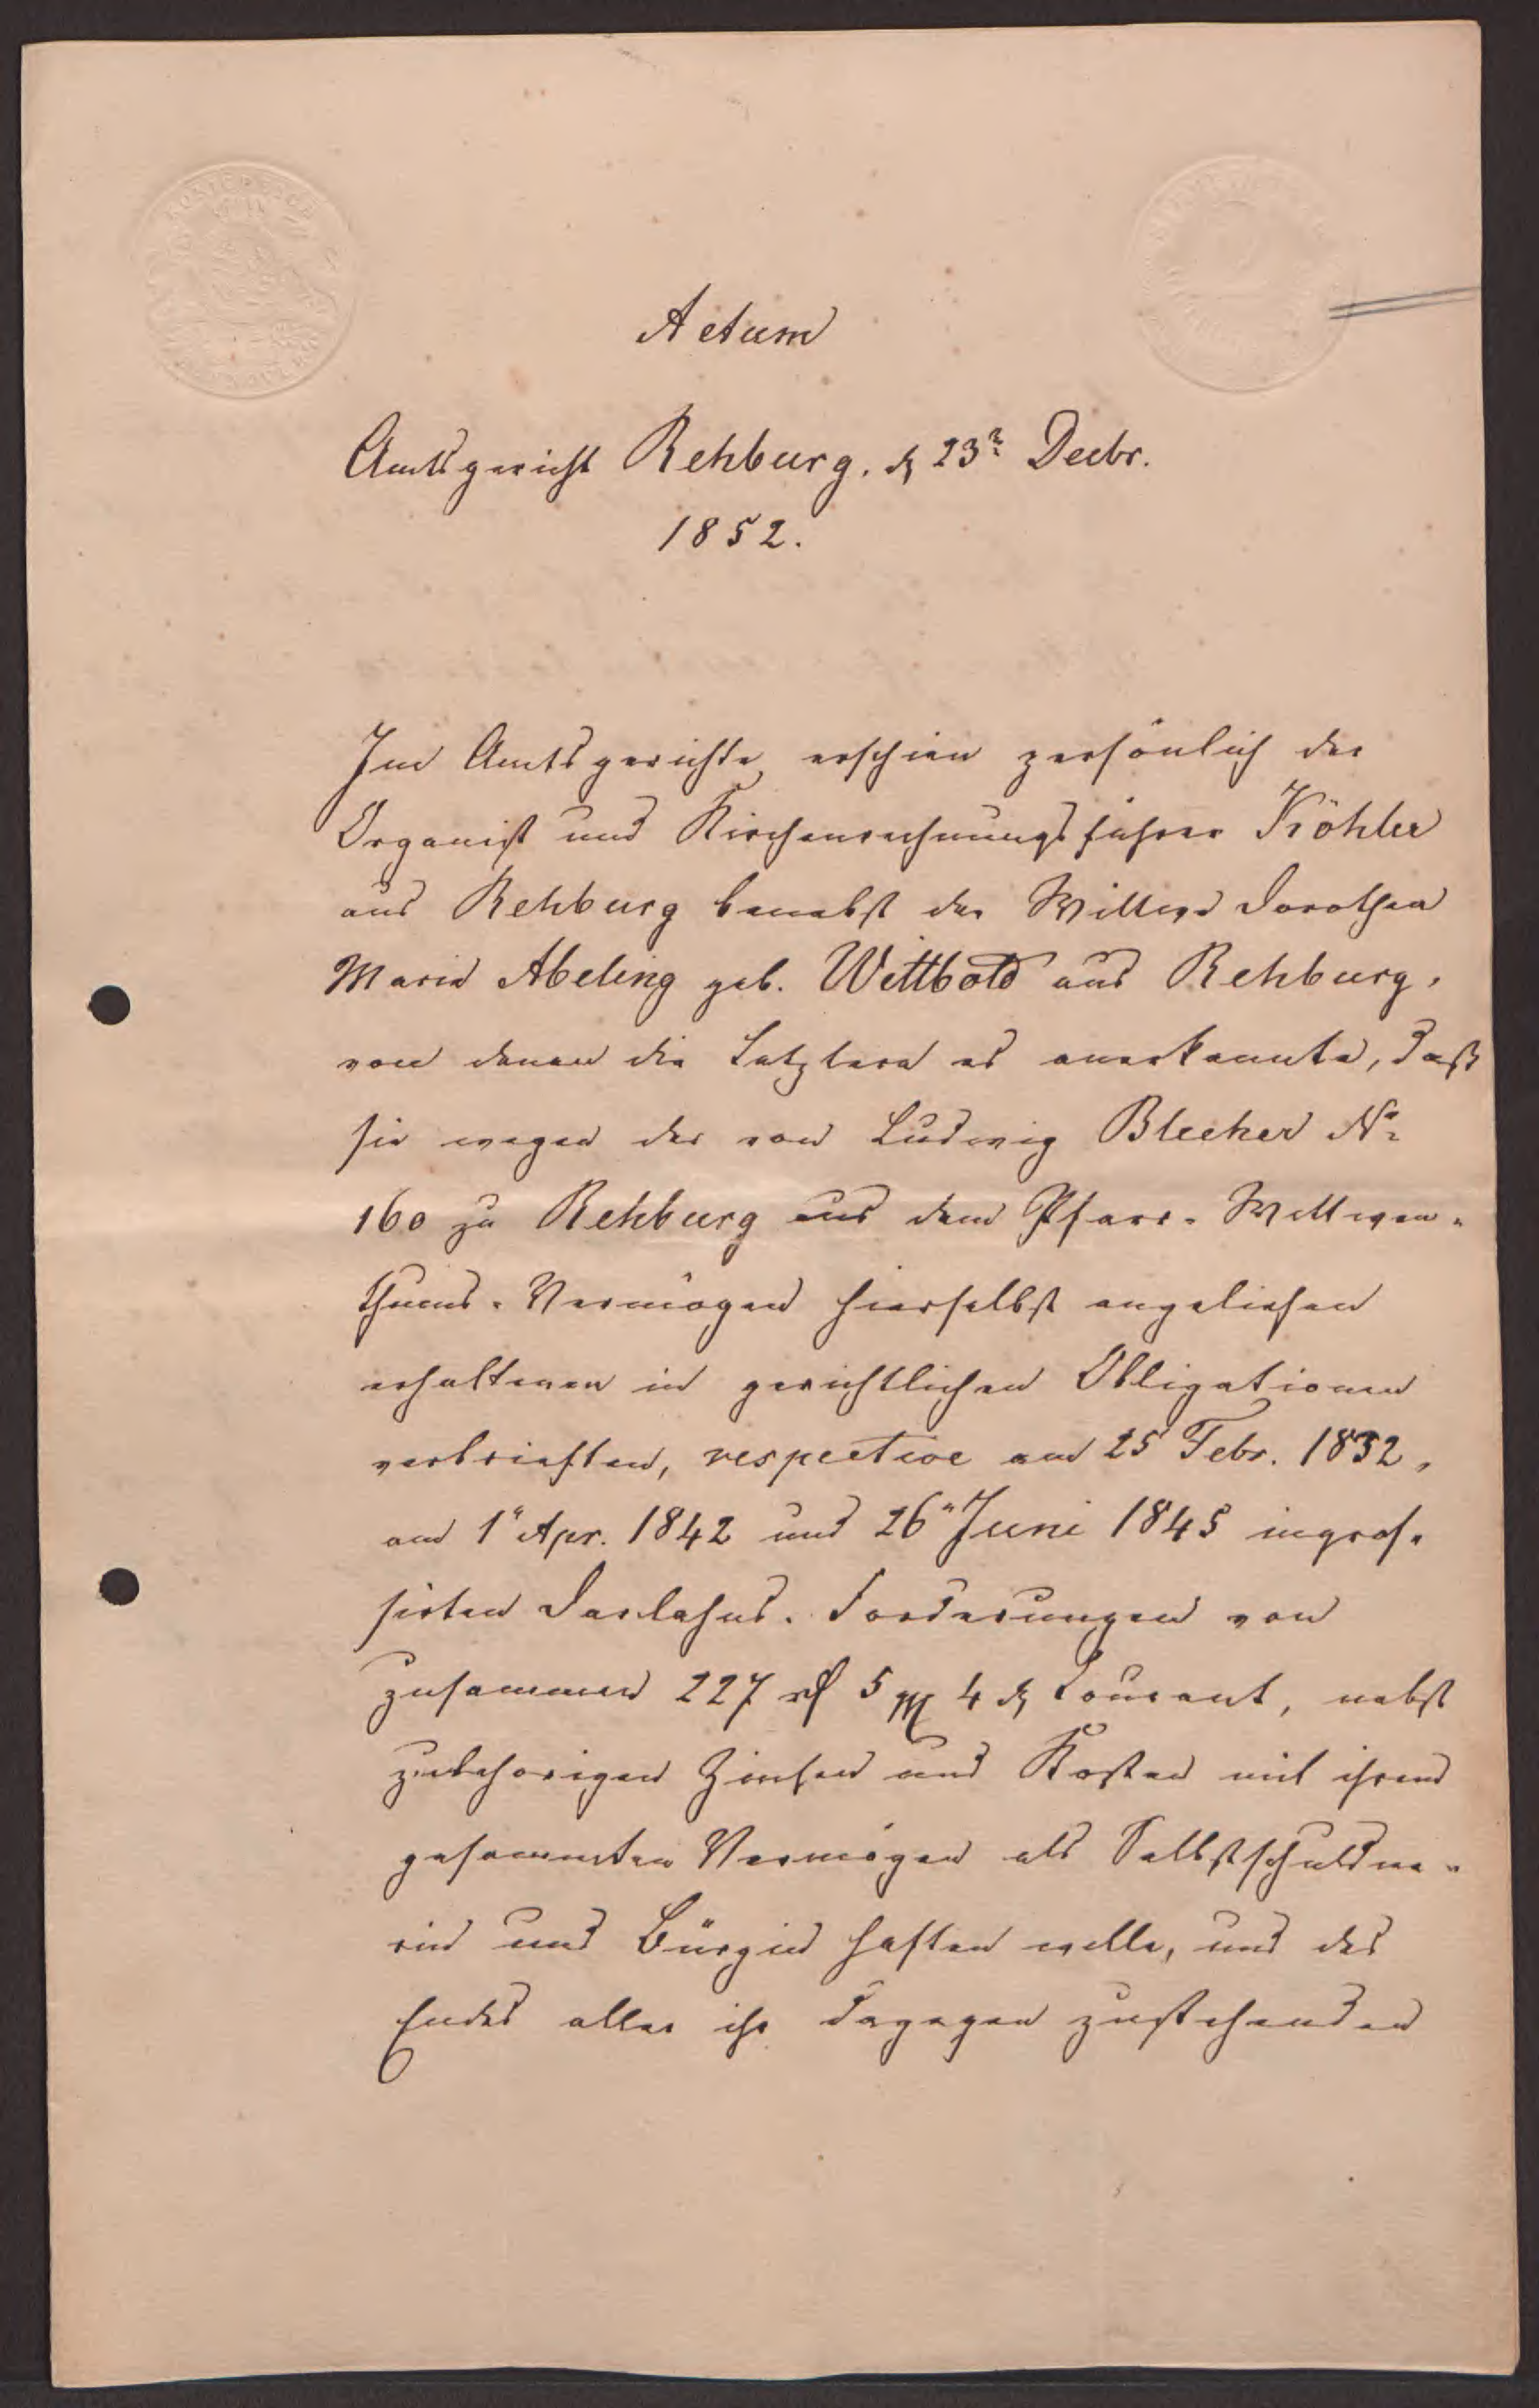 Actum
Amtsgericht Rehburg. d 23t Decbr.
1852.
Im Amtsgerichte erschien persönlich der
Organist und Kirchenrechnungsführer Köhler
aus Rehburg benebst der Wittwe Dorothea
Marie Abeling geb. Wittbold aus Rehburg,
von denen die Letztere es anerkannte, daß
sie wegen der von Ludwig Blecher No
160 zu Rehburg aus dem Pfarr-Wittwen-
thums-Vermögen hierselbst angeliehen
erhaltenen in gerichtlichen Obligationen
verbrieften, respective am 25 Febr. 1832,
am 1" Apr. 1842 und 26" Juni 1845 ingros-
sirten Darlehns-Forderungen von
zusammen 227 rf 5 gg 4 d Courant, nebst
zubehörigen Zinsen und Kosten mit ihrem
gesammten Vermögen als Selbstschuldne-
rin und Bürgin haften wolle, und des
Endes aller ihr dagegen zustehenden